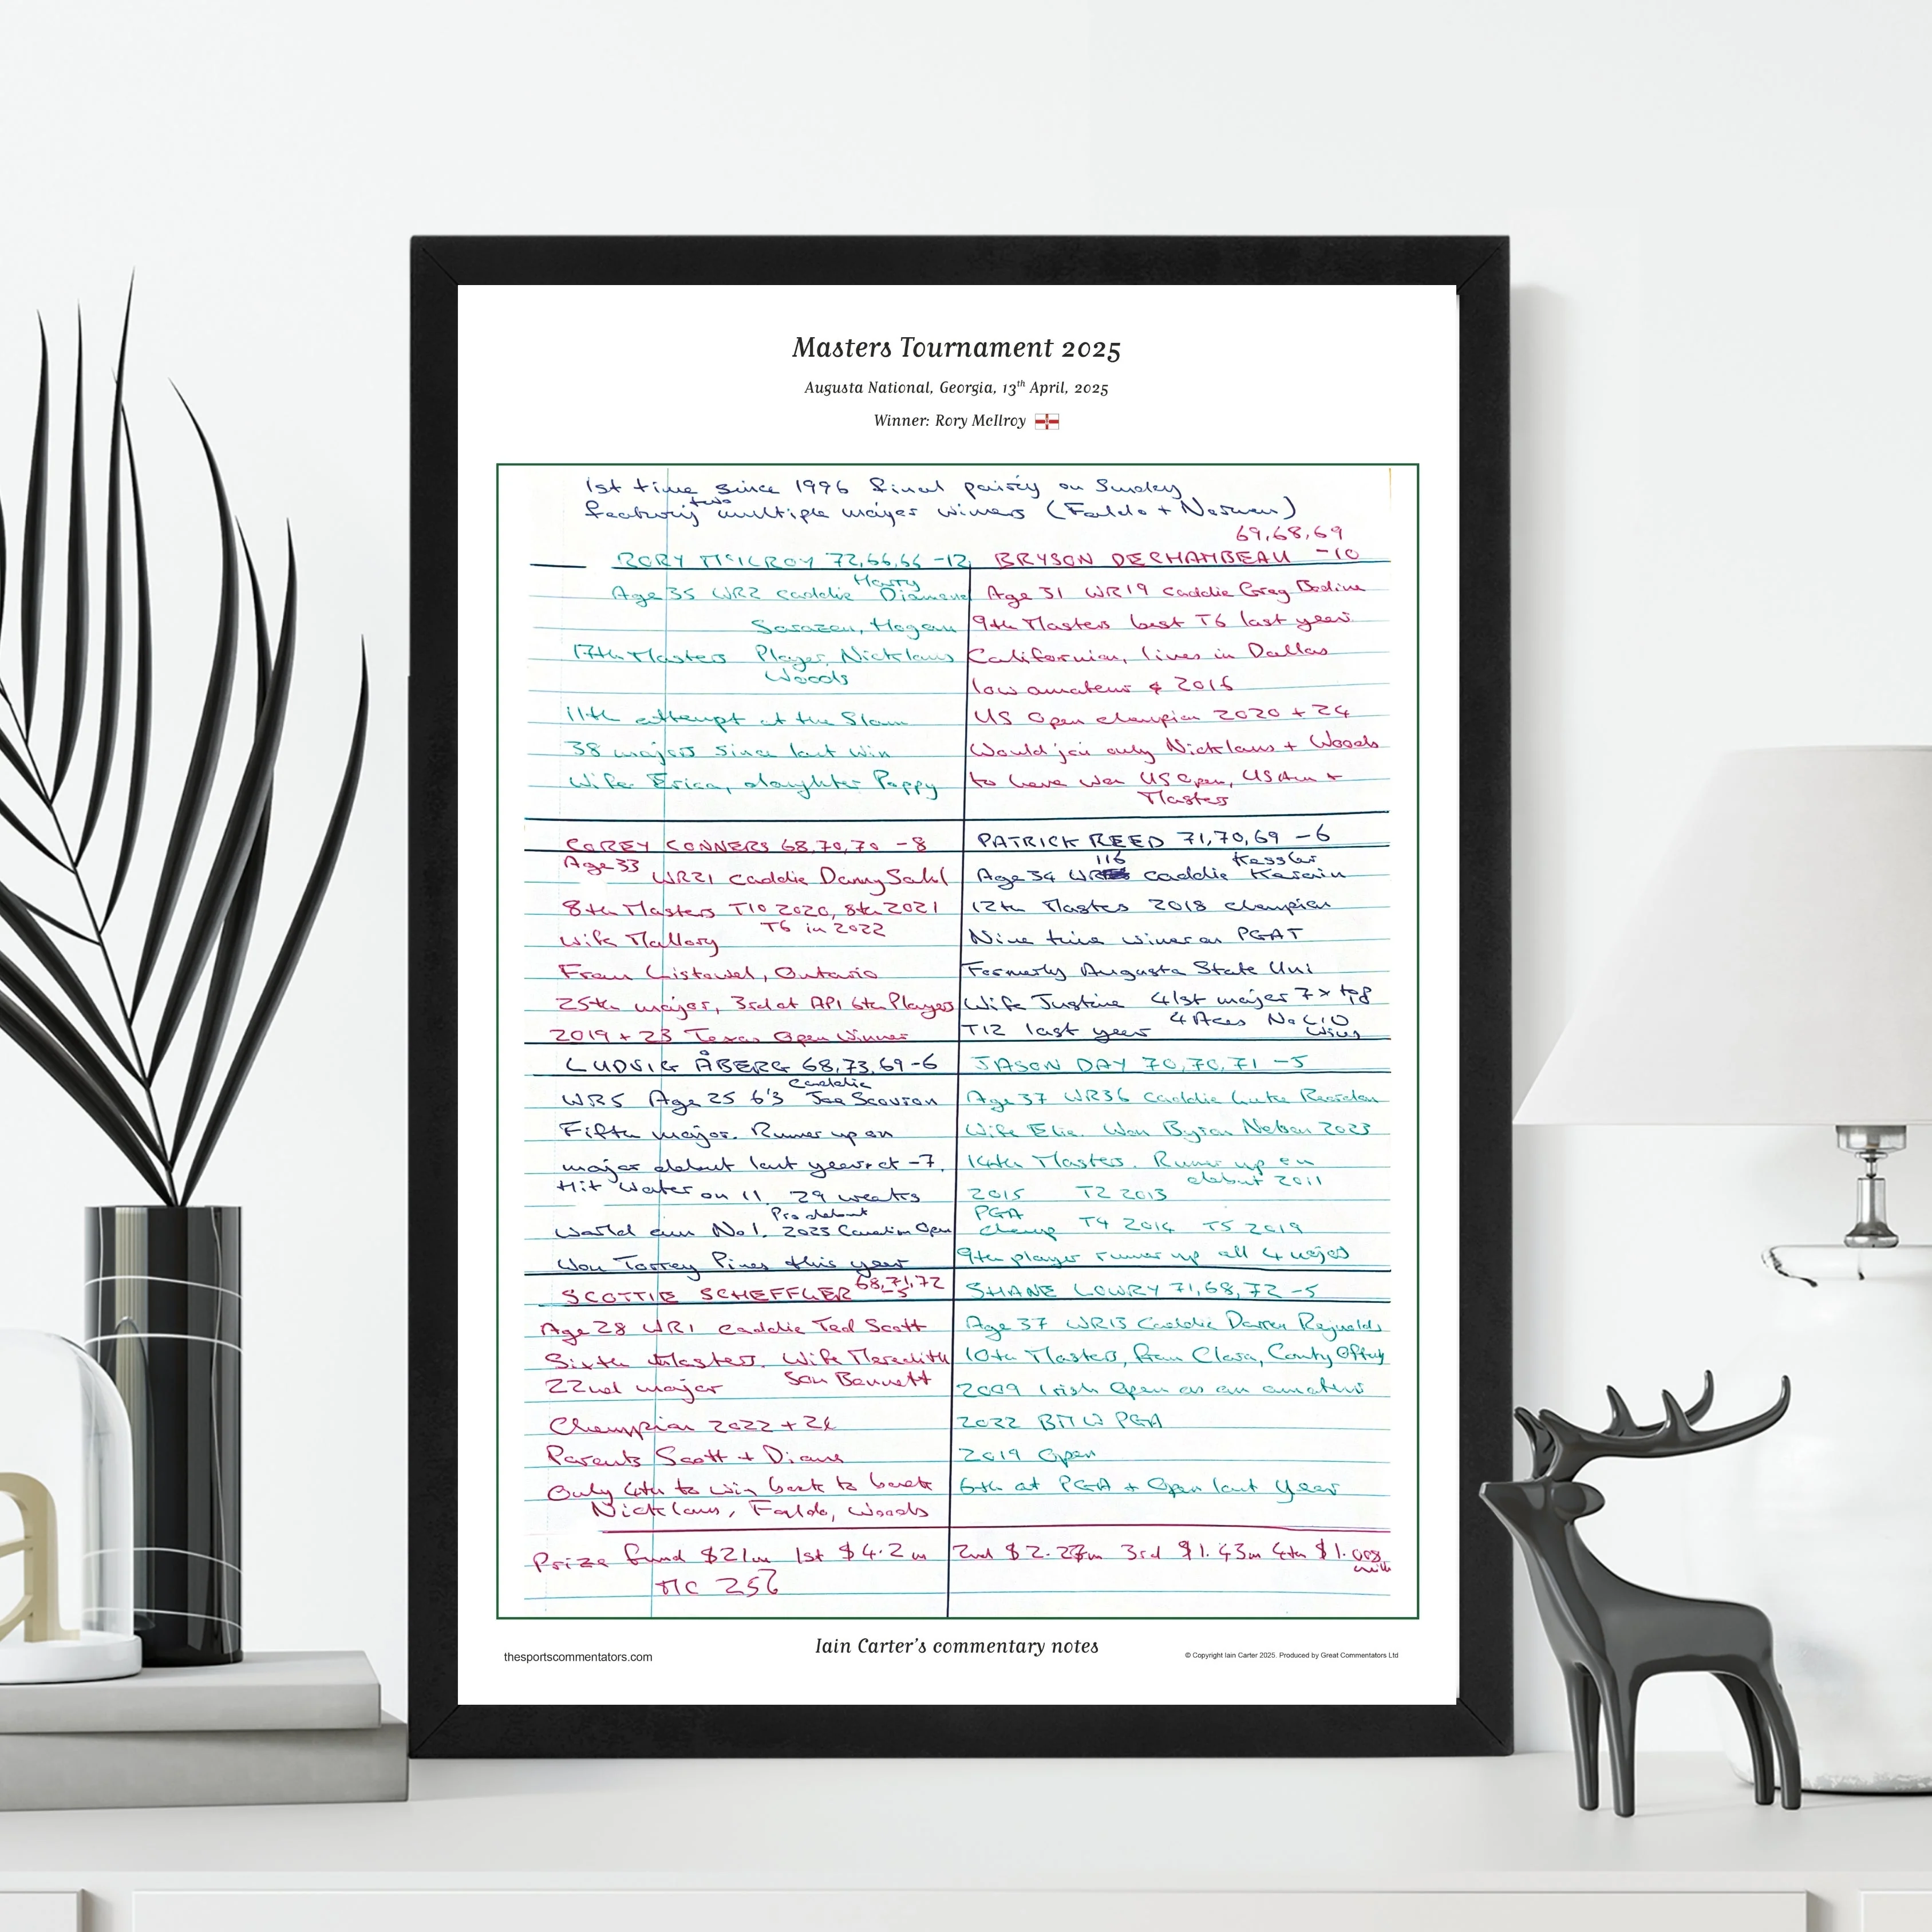 Masters Tournament 2025
Augusta National, Georgia, 13th April, 2025
Winner: Rory McIlroy
1st time since 1996 final pairing on Sunday
featuring two multiple major winners (Faldo + Norman)
69,68,69
RORY McILROY 72,66,66 -12
BRYSON DECHAMBEAU -10
Age 35 WR2 caddie Harry Diamond
Sarazen, Hogan
17th Masters Player, Nicklaus
Woods
11th attempt at the Slam
38 majors since last win
Wife Erica, daughter Poppy
Age 31 WR19 caddie Greg Bodine
9th Masters best T6 last year
Californian, lives in Dallas
low amateur 2016
US Open champion 2020 + 24
Would join only Nicklaus + Woods
to have won US Open, US Am +
Masters
COREY CONNERS 68,70,70 -8
Age 33 WR21 caddie Danny Sahl
8th Masters T10 2020, 8th 2021
T6 in 2022
Wife Mallory
From Listowel, Ontario
25th major, 3rd at API 6th Players
2019 + 23 Texas Open Winner
PATRICK REED 71,70,69 -6
116 Kessler
Age 34 WR caddie Karain
12th Masters 2018 champion
Nine time winner on PGAT
Formerly Augusta State Uni
Wife Justine 41st major 7 x top
T12 last year 4 Aces No LIV
wins
LUDVIG ÅBERG 68,73,69 -6
caddie
WR5 Age 25 6'3 Joe Scovron
Fifth major. Runner up on
major debut last year at -7.
Hit water on 11. 29 weeks
Pro debut
world am No1. 2023 Canadian Open
Won Torrey Pines this year
JASON DAY 70,70,71 -5
Age 37 WR36 caddie Luke Reardon
Wife Ellie. Won Byron Nelson 2023
14th Masters. Runner up on
debut 2011
2015 T2 2013
PGA
champ T4 2014 T5 2019
9th player runner up all 4 majors
SCOTTIE SCHEFFLER 68,71,72
-5
Age 28 WR1 caddie Ted Scott
Sixth Masters. Wife Meredith
22nd major Son Bennett
Champion 2022 + 24
Parents Scott + Diane
Only 4th to win back to back
Nicklaus, Faldo, Woods
SHANE LOWRY 71,68,72 -5
Age 37 WR13 Caddie Darren Reynolds
10th Masters, from Clara, County Offaly
2009 Irish Open as an amateur
2022 BMW PGA
2019 Open
6th at PGA + Open last year
Prize fund $21m 1st $4.2m 2nd $2.27m 3rd $1.43m 4th $1.008
mill
MC 25
Iain Carter's commentary notes
thesportscommentators.com
© Copyright Iain Carter 2025. Produced by Great Commentators Ltd